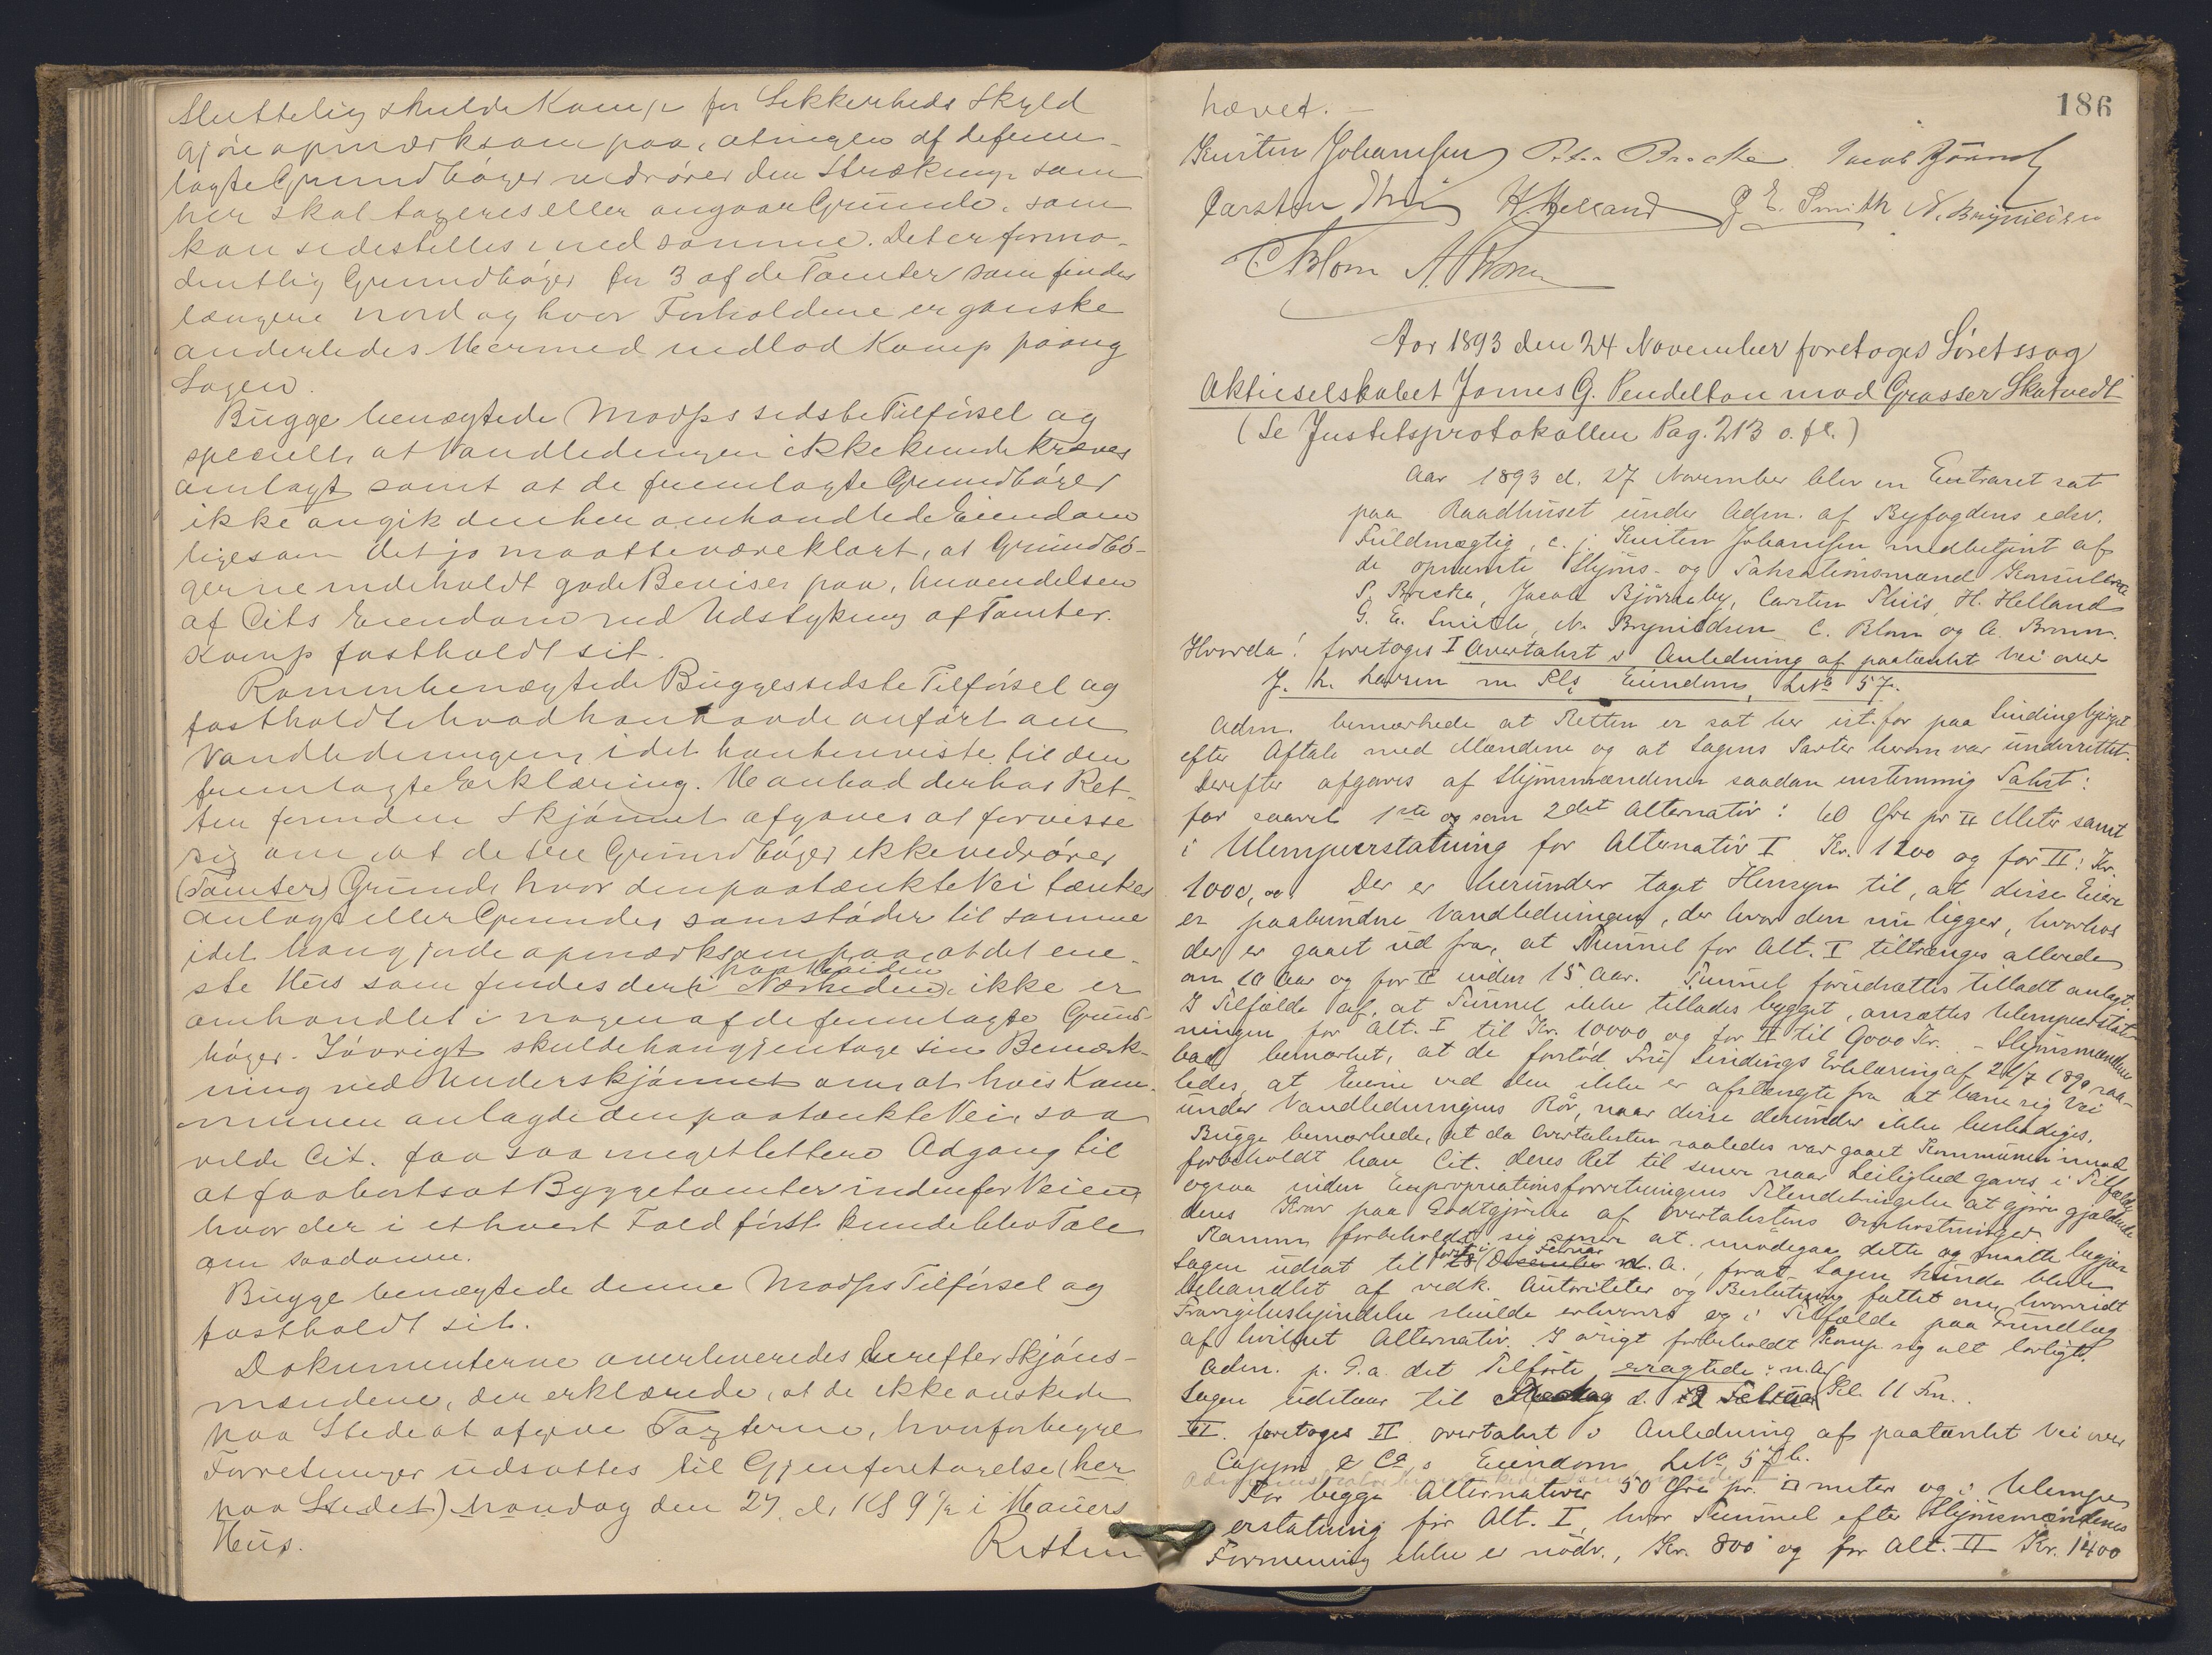 Sluttelig skulde Kamp for Sikkerheds Skyld
gjøre opmærksom paa, at ingen af de frem-
lagte Grundbøger vedrører den Strækning som
her skal taxeres eller angaar Grunde, som
kan sidestilles med samme. Det er formo-
dentlig Grundbøger for 3 af de Tomter som findes
længere nord og hvor Forholdene er ganske
anderledes. Hermed indlod Kamp paany
Sagen.
Bugge benægtede Modps sidste Tilførsel og
specielt at Vandledningen ikke kunde kræves
omlagt samt at de fremlagte Grundbøger
ikke angik den her omhandlede Eiendom
ligesom det jo maatte være klart, at Grundbø-
gerne indeholdt gode Beviser paa, Anvendelsen
af Cits Eiendom ved Udstykning af Tomter.
Kamp fastholdt sit.
Ramm benægtede Bugges sidste Tilførsel og
fastholdt hvad han havde anført om
Vandledningen, idet han henviste til den
fremlagte Erklæring. Han bad derhos Ret-
ten forinden Skjønnet afgaves at forvisse
sig om at de tre Grundbøger ikke vedrører
(Tomter) Grunde hvor den paatænkte Vei tænkes
anlagt eller Grunde som støder til samme
idet han gjorde opmærksom paa, at det ene-
ste Hus som findes der (i Nærheden) paa Heiden ikke er
omhandlet i nogen af de fremlagte Grund-
bøger. Iøvrigt skulde han gjentage sin Bemærk-
ning ved Underskjønnet om, at hvis Kom-
munen anlagde den paatænkte Vei, saa
vilde Cit. faa saa meget lettere Adgang til
at faa bortsat Byggetomter indenfor Veien,
hvor der i ethvert Fald først kunde blive Tale
om saadanne.
Bugge benægtede denne Modps Tilførsel og
fastholdt sit.
Dokumenterne overleveredes derefter Skjøns-
mændene, der erklærede, at de ikke ønskede
paa Stedet at afgive Taxterne, hvorfor begge
Forretninger udsattes til Gjenforetagelse (her
paa Stedet) Mandag den 27. d. Kl 9 1/2 i Hauers
Hus.
Retten
186
hævet. –
Kristen Johansen Peter Brecke Jacob Bjørnaby
Carsten Thiis H. Helland G. E. Smith N. Brynildsen
C. Blom A. Bronn
Aar 1893 den 24 November foretoges Søretssag
Aktieselskabet James G. Pendelton mod Grosser Skatvedt
(Se Justitsprotokollen Pag. 213 o. fl.)
Aar 1893 d. 27 November blev en Extraret sat
paa Raadhuset under Adm. af Byfogdens edsv.
Fuldmægtig, c. j. Kristen Johansen medbetjent af
de opnævnte Skjøns- og Taxationsmænd Konsulerne
P. Brecke, Jacob Bjørnaby, Carsten Thiis, H. Helland
G. E. Smith, N. Brynildsen C. Blom og A. Bronn.
Hvorda: foretoges I Overtaxt i Anledning af paatænkt Vei over
J. h. Larsen m Fls Eiendom, Lit a 57.
Adm. bemærkede at Retten er sat her ist. for paa Lindingbjerget
efter Aftale med Mændene og at Sagens Parter herom var underrettet.
Derefter afgaves af Skjønsmændene saadan enstemmig Taxt:
for saavel 1ste og som 2det Alternativ: 60 Øre pr □ Meter samt
i Ulempeerstatning for Alternativ I Kr. 1200 og for II: Kr.
1000,00. Der er herunder taget Hensyn til, at disse Eiere
er paabundne Vandledningen, der hvor den nu ligger, hvorhos
der er gaaet ud fra, at Tunnel for Alt. I tiltrænges allerede
om 10 Aar og for II inden 15 Aar. Tunnel forudsættes tilladt anlagt
I Tilfælde af, at Tunnel ikke tillades bygget, ansættes Ulempeerstat-
ningen for Alt. I til Kr. 10000 og for II til 9000 Kr. – Skjønsmændene
bad bemærket, at de forstod Fru Lindings Erklæring af 21/7 1890 saa-
ledes, at Eierne ved den ikke er afstængte fra at bane sig Vei
under Vandledningens Rør, naar disse derunder ikke beskadiges.
Bugge bemærkede, at da Overtaxten saaledes var gaaet Kommunen imod
forbeholdt han Cit. deres Ret til senere naar Leilighed gaves i Tilfælde
ogsaa inden Expropriationsforretningens Tilendebringelse at gjøre gjældende
deres Krav paa Godtgjørelse af Overtaxtens Omkostninger.
Ramm forbeholdt sig senere at imødegaa dette og maatte begjære
Sagen udsat til først i Februar n. A., forat Sagen kunde blive
behandlet af vedk. Autoriteter og Beslutning fattet om, hvorvidt
Fravigelseskjendelse skulde erhverves og i Tilfælde paa Grundlag
af hvilket Alternativ. I øvrigt forbeholdt Kamp sig alt lovligt.
Adm. p. G. a. det Tilførte eragtede: n. A.
Sagen udstaar til d. 9 Februar Kl. 11 Fm.
II. foretoges II overtaxt i Anledning af paatænkt Vei over
Cappen & Co.s Eiendom Lit a 57 b.
For begge Alternativer 50 Øre pr. □ meter og i Ulempe
erstatning for Alt. I, hvor Tunnel efter Skjønsmændenes
Formening ikke er nødv., Kr. 800 og for Alt. II Kr. 1400